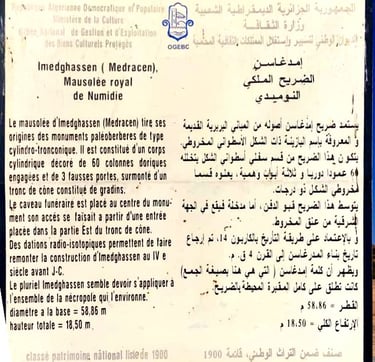 République Algérienne Démocratique et Populaire
الجمهورية الجزائرية الديمقراطية الشعبية
Ministère de la Culture
وزارة الثقافة
National de Gestion et d'Exploitation
des Biens Culturels Protégés
OGEBC
Imedghassen ( Medracen),
Mausolée royal
de Numidie
إمدغاسن
الضريح الملكي
النوميدي
Le mausolée d'Imedghassen (Medracen) tire ses
origines des monuments paléoberbères de type
cylindro-tronconique. Il est constitué d'un corps
cylindrique décoré de 60 colonnes doriques
engagées et de 3 fausses portes, surmonté d'un
tronc de cône constitué de gradins.
Le caveau funéraire est placé au centre du monument
son accès se faisait à partir d'une entrée
placée dans la partie Est du tronc de cône.
Des dations radio-isotopiques permettent de faire
remonter la construction d'Imedghassen au IV e
siècle avant J-C.
Le pluriel Imedghassen semble devoir s'appliquer à
l'ensemble de la nécropole qui l'environne.
diametre a la base = 58.86 m
hauteur totale = 18,50 m
يستمد ضريح إمدغاسن أصوله من المباني البربرية القديمة
و المعروفة بإسم البازينة ذات الشكل الأسطواني المخروطي.
يتكون هذا الضريح من قسم سفلي أسطواني الشكل تتخلله
60 عمودا دوريا و ثلاثة أبواب وهمية، يعلوه قسما
مخروطي الشكل ذو درجات.
يتوسط هذا الضريح قبو الدفن، أما مدخله فيقع في الجهة
الشرقية من عنق المخروط.
و بالإعتماد على طريقة التأريخ بالكاربون 14، تم إرجاع
تاريخ بناء المدغاسن إلى القرن 4 ق.م.
ويظهر أن كلمة إمدغاسن ( التي هي هنا بصيغة الجمع)
كانت تطلق على كامل المقبرة المحيطة بالضريح.
القطر = 58.86 م
الإرتفاع الكلي = 18.50 م
classé patrimoine national liste de 1900
صنف ضمن التراث الوطني، قائمة 1900